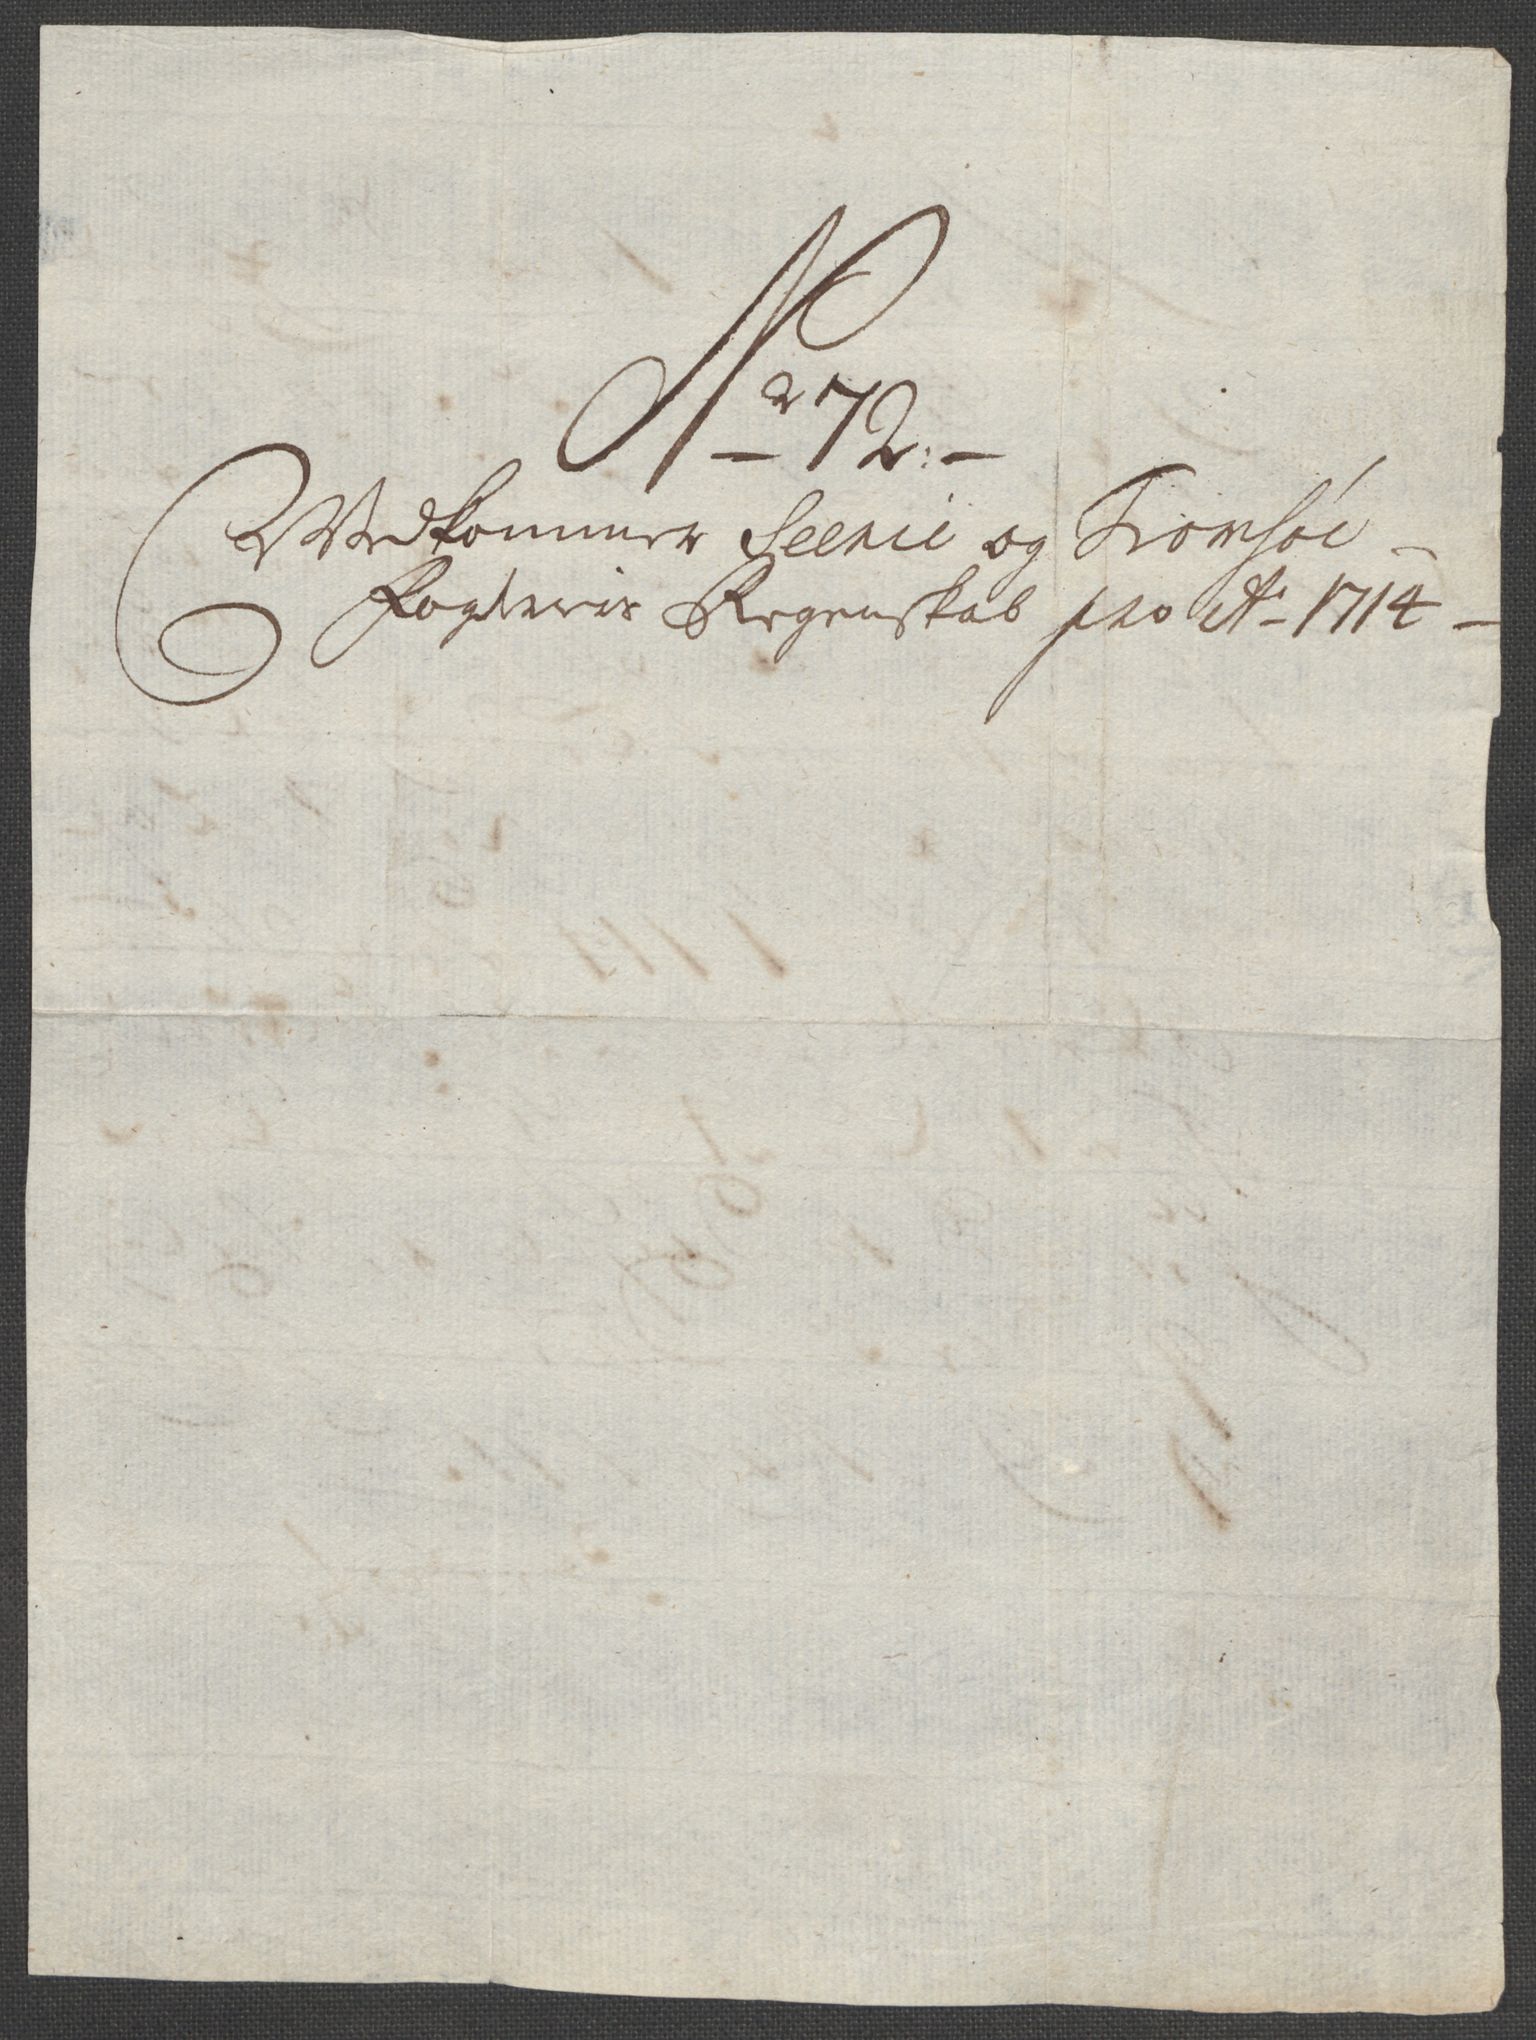 No 72:-
Vedkommer Seenie og Tromsøe
Fogderis Regenskab pro Ao 1714 -